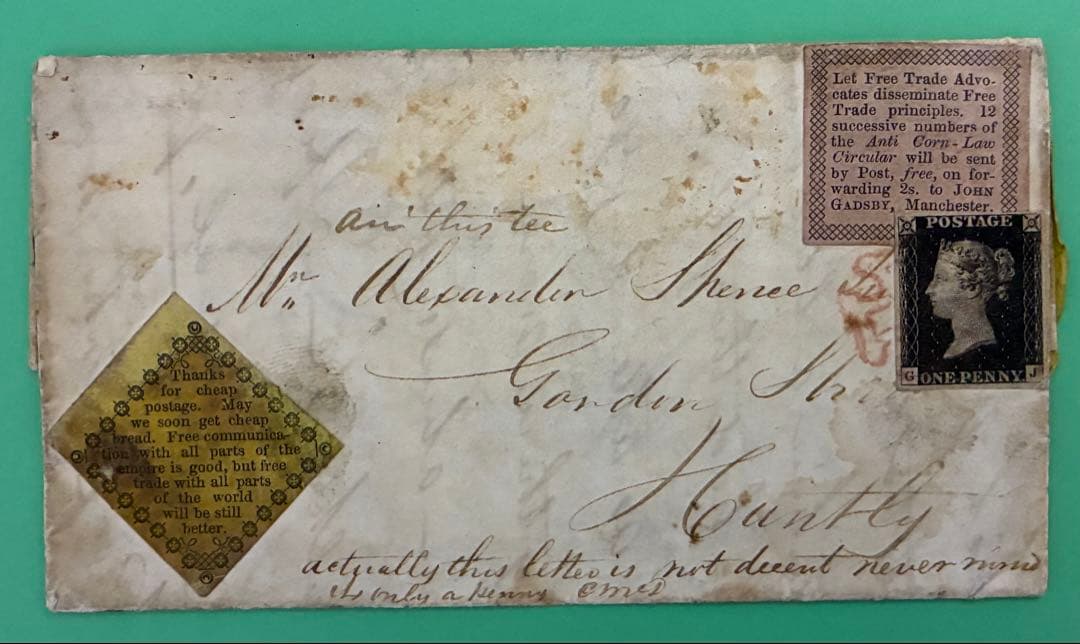 Let Free Trade Advo-
cates disseminate Free
Trade principles. 12
successive numbers of
the Anti Corn-Law
Circular will be sent
by Post, free, on for-
warding 2s. to JOHN
GADSBY, Manchester.
POSTAGE
G ONE PENNY J
Mr Alexander
Gordon
Huntly
Thanks
for cheap
postage. May
we soon get cheap
bread. Free communica-
tion with all parts of the
empire is good, but free
trade with all parts
of the world
will be still
better.
actually this letter is not decent never mind
only a penny